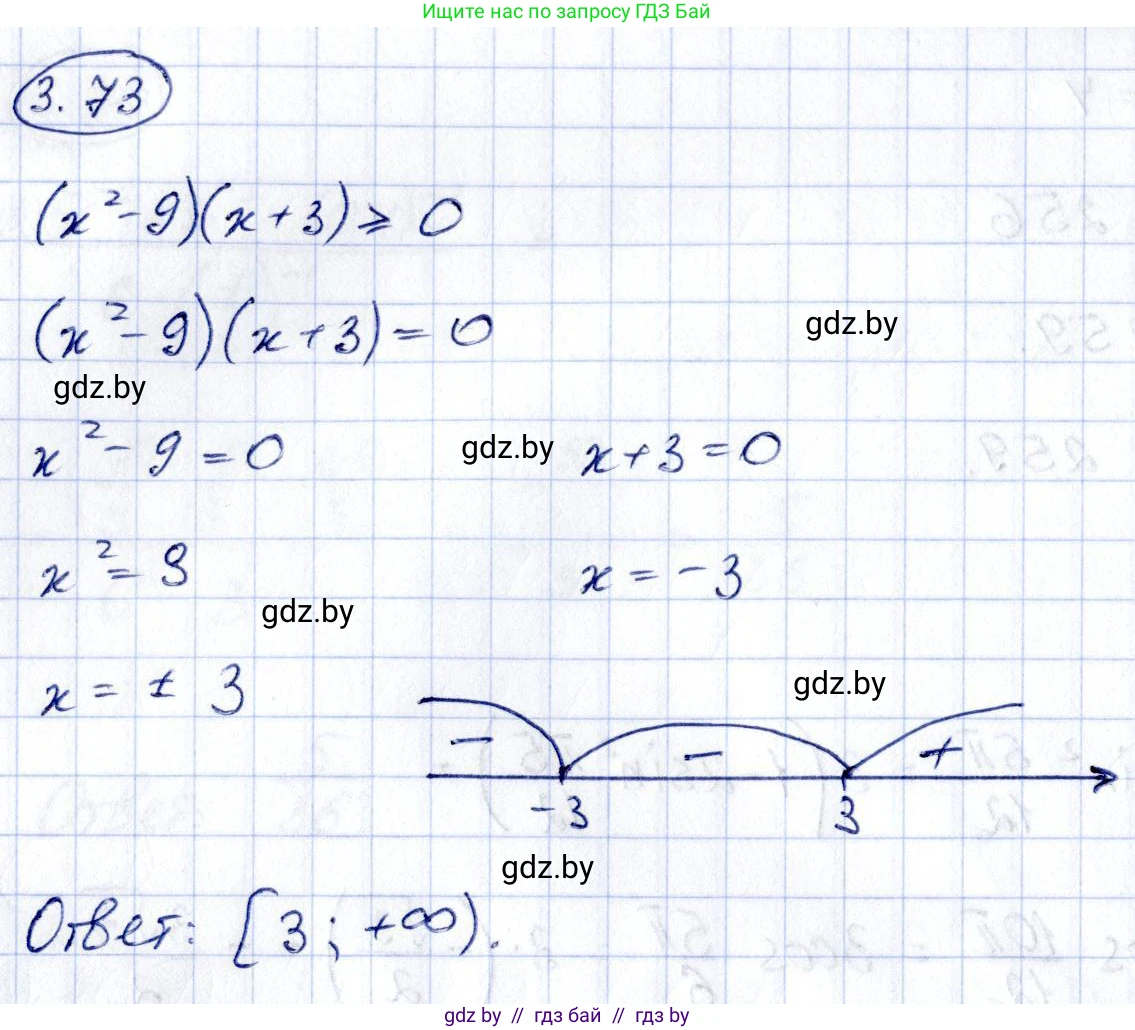 Ищите нас по запросу ГДЗ Бай
3.73
(x²-9)(x+3)⩾0
(x²-9)(x+3)=0
gdz.by
gdz.by
x²-9=0 gdz.by x+3=0
x²=9 x=-3
gdz.by
x=±3
gdz.by
- - +
-3 3
gdz.by
Ответ: [3; +∞).
gdz.by // гдз бай // гдз by